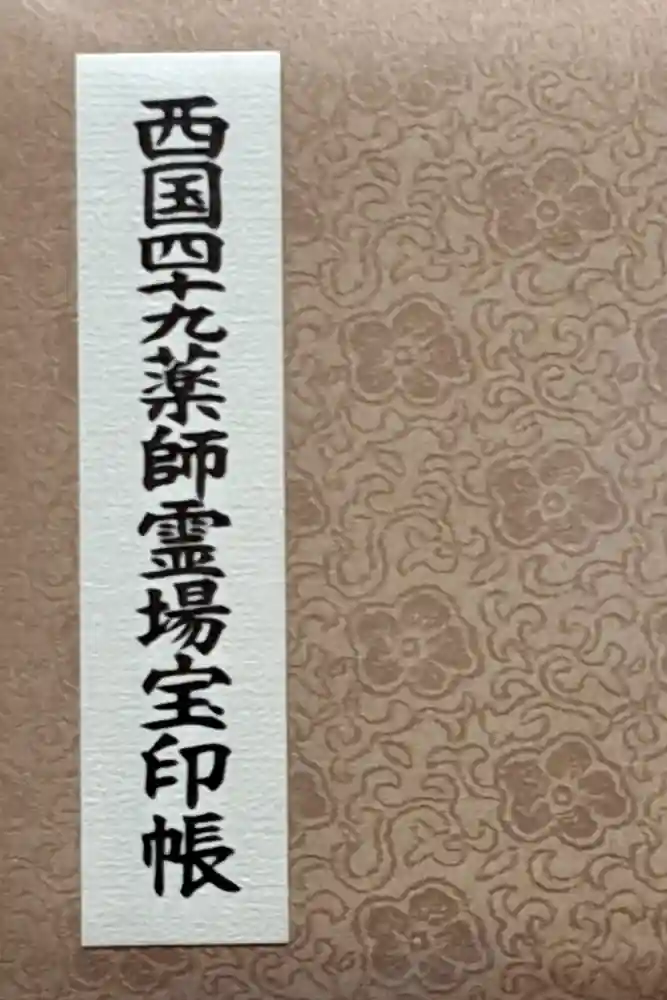 西国四十九薬師霊場宝印帳